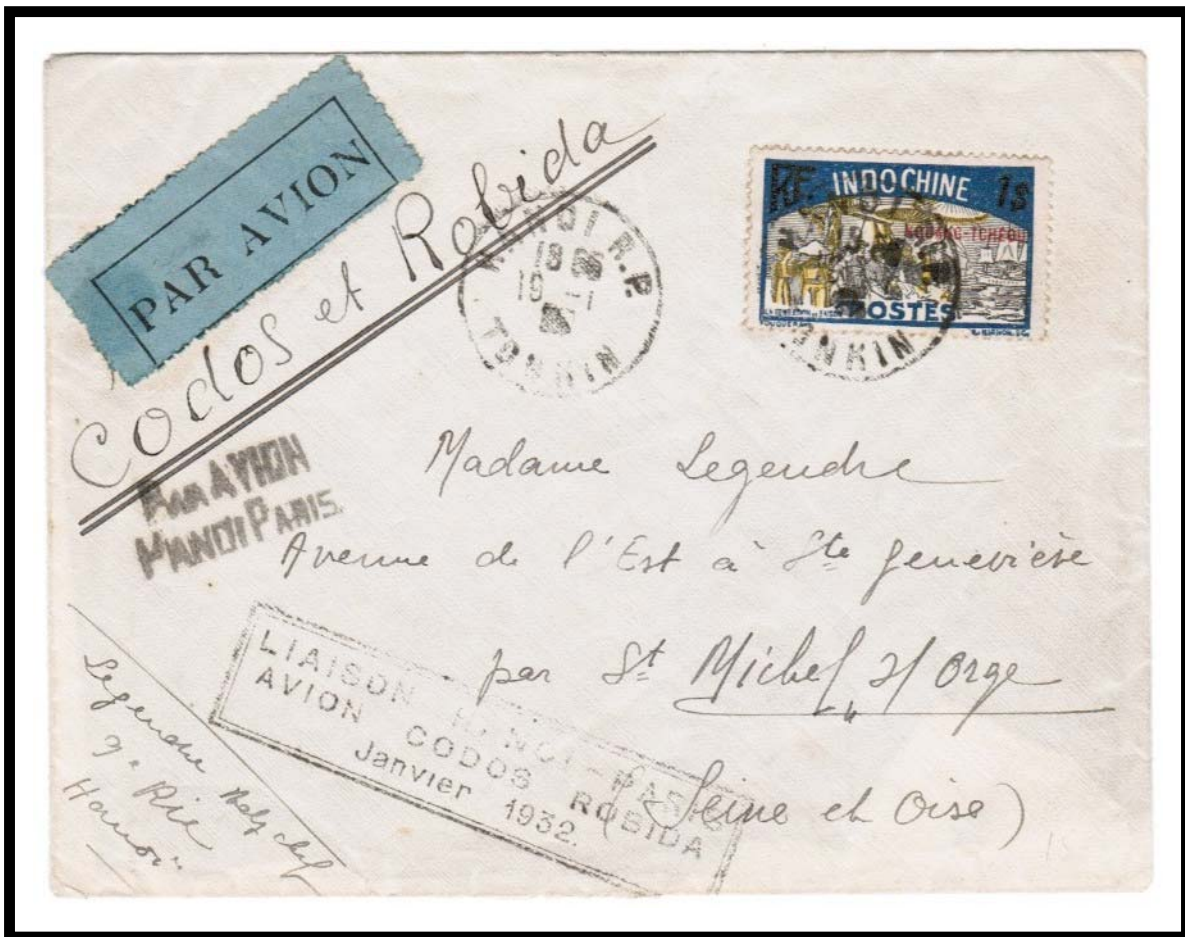 PAR AVION
Codos et Robida
HANOI R.P.
18
19 -1
TONKIN
RF INDOCHINE 1$
KOUANG-TCHÉOU
POSTES
TONKIN
PAR AVION
HANOI PARIS.
Madame Legendre
Avenue de l'Est à Ste Geneviève
par St Michel s/ Orge
(Seine et Oise)
LIAISON HANOI-PARIS
AVION CODOS ROBIDA
Janvier 1932.
Legendre
9e
Hanoi